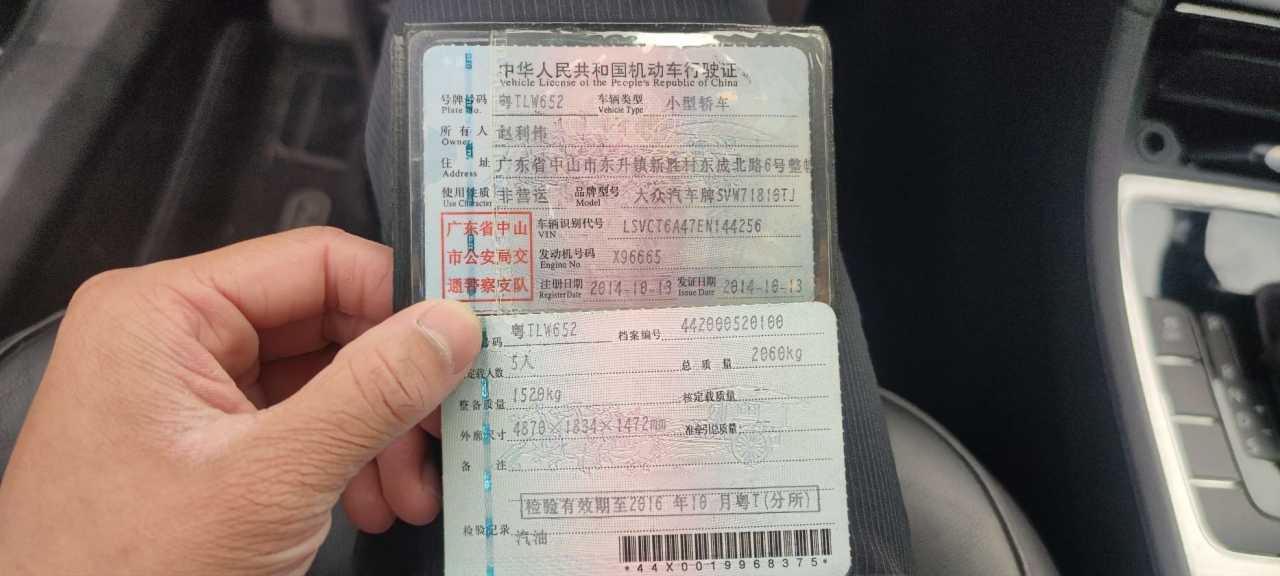 中华人民共和国机动车行驶证
Vehicle License of the People's Republic of China
号牌号码 粤TLW652 车辆类型 小型轿车
Plate No. Vehicle Type
所有人 赵利伟
Owner
住址 广东省中山市东升镇新胜村东成北路6号整
Address
使用性质 非营运 品牌型号 大众汽车牌SVW71810TJ
Use Character Model
广东省中山
市公安局交
通警察支队
车辆识别代号 LSVCT6A47EN144256
VIN
发动机号码 X96665
Engine No
注册日期 2014-10-13 发证日期 2014-10-13
Register Date Issue Date
号码 粤TLW652 档案编号 442000520100
定载人数 5人 总质量 2060kg
整备质量 1520kg 核定载质量
外廓尺寸 4870×1834×1472mm 准牵引总质量
备注
检验有效期至2016 年10 月粤T(分所)
检验记录
汽油
*44X0019968375*